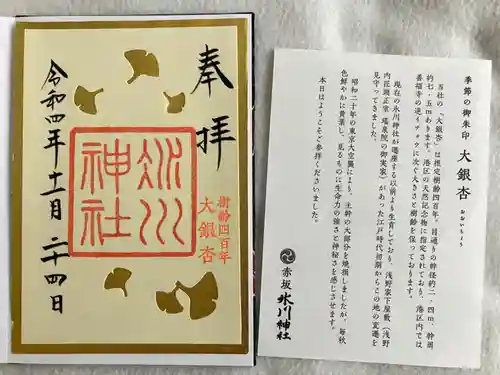 奉拝
氷川神社
樹齢四百年
大銀杏
令和四年十一月二十四日
季節の御朱印 大銀杏
おおいちょう
当社の「大銀杏」は推定樹齢四百年。目通りの幹径約二・四m、幹周
約七・五mあります。港区の天然記念物に指定されており、港区内では
善福寺の逆イチョウに次ぐ大きさと樹齢を保っております。
現在の氷川神社が遷座する以前より生育しており、浅野家下屋敷（浅野
内匠頭正室 瑤泉院の御実家）があった江戸時代初期からこの地の変遷を
見守ってきました。
昭和二十年の東京大空襲により、主幹の大部分を焼損しましたが、毎秋
色鮮やかに黄葉し、見るものに生命力の強さと神秘さを感じさせます。
本日はようこそご参拝くださいました。
赤坂 氷川神社